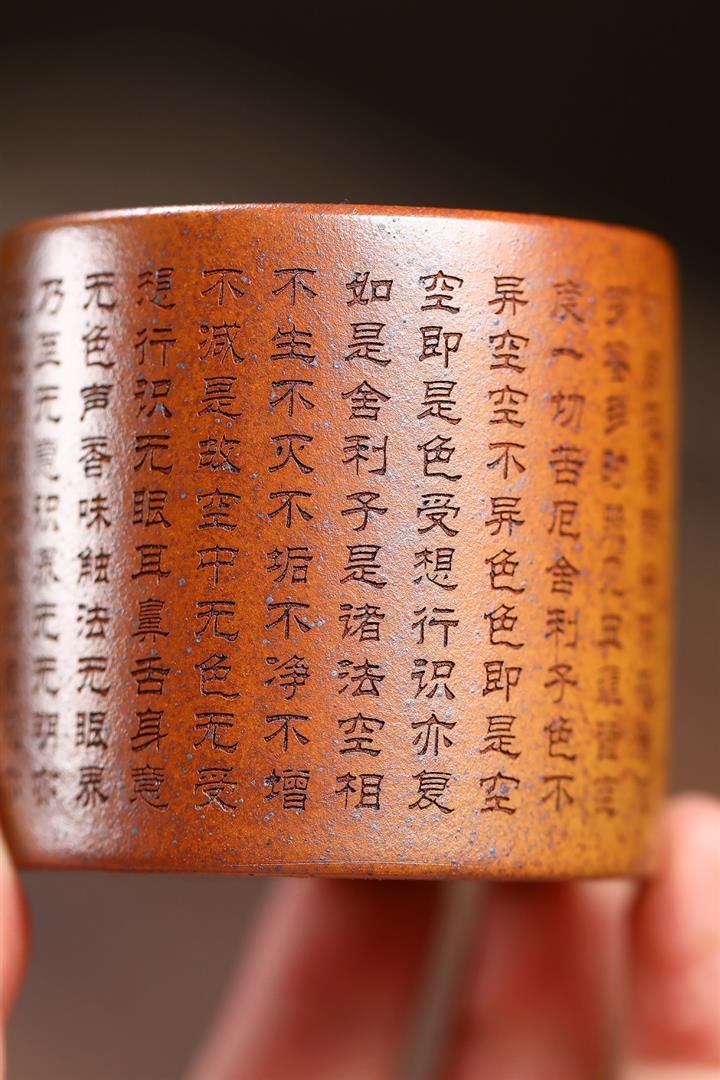 罗蜜多时照见五蕴皆空
度一切苦厄舍利子色不
异空空不异色色即是空
空即是色受想行识亦复
如是舍利子是诸法空相
不生不灭不垢不净不增
不减是故空中无色无受
想行识无眼耳鼻舌身意
无色声香味触法无眼界
乃至无意识界无无明亦